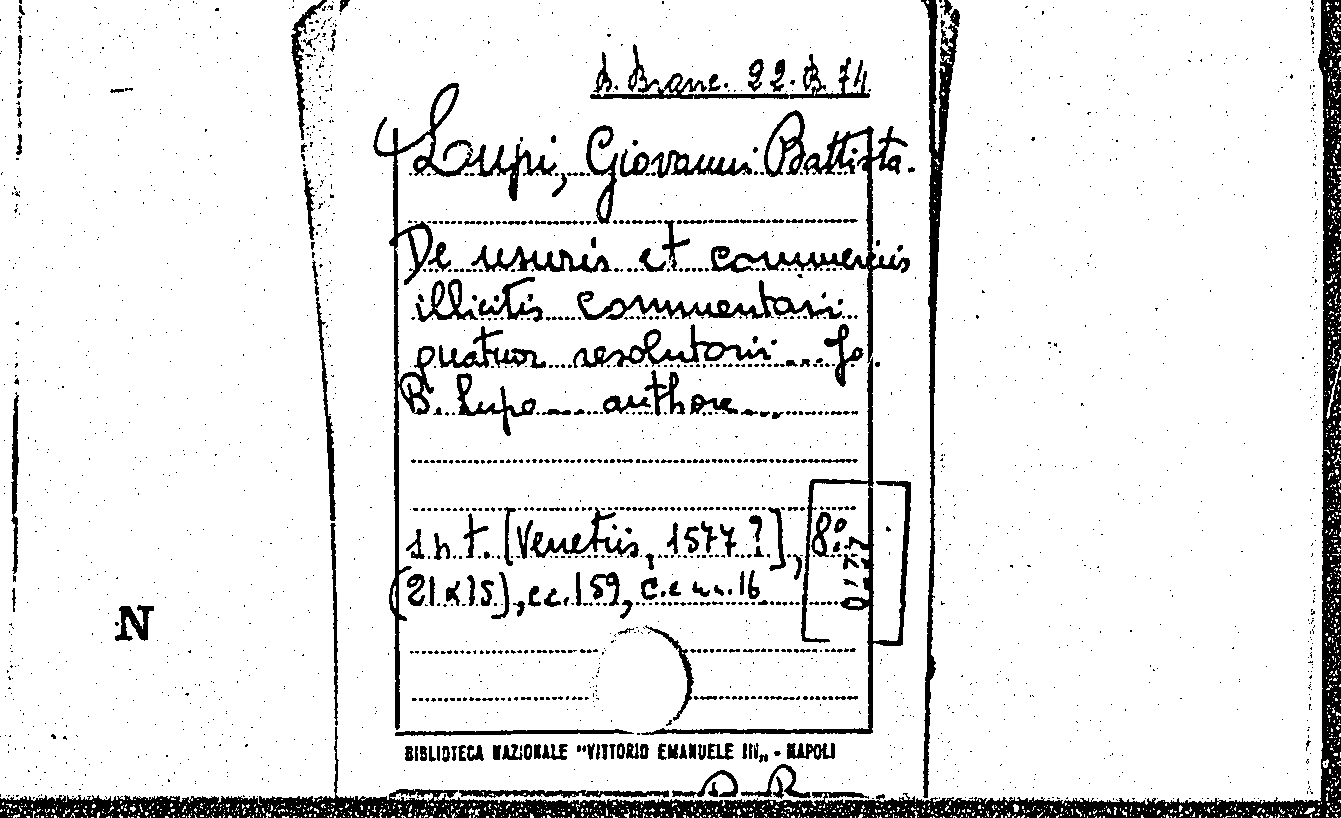 B. Branc. 22. B. 74
Lupi, Giovanni Battista.
De usuris et commerciis
illicitis commentarii
quatuor resolutorii ... Jo.
B. Lupo ... authore ...
s n t. [Venetiis, 1577 ?], 8º.
(21 x 15), cc. 159, c.c n.n. 16
N
BIBLIOTECA NAZIONALE "VITTORIO EMANUELE III„ - NAPOLI